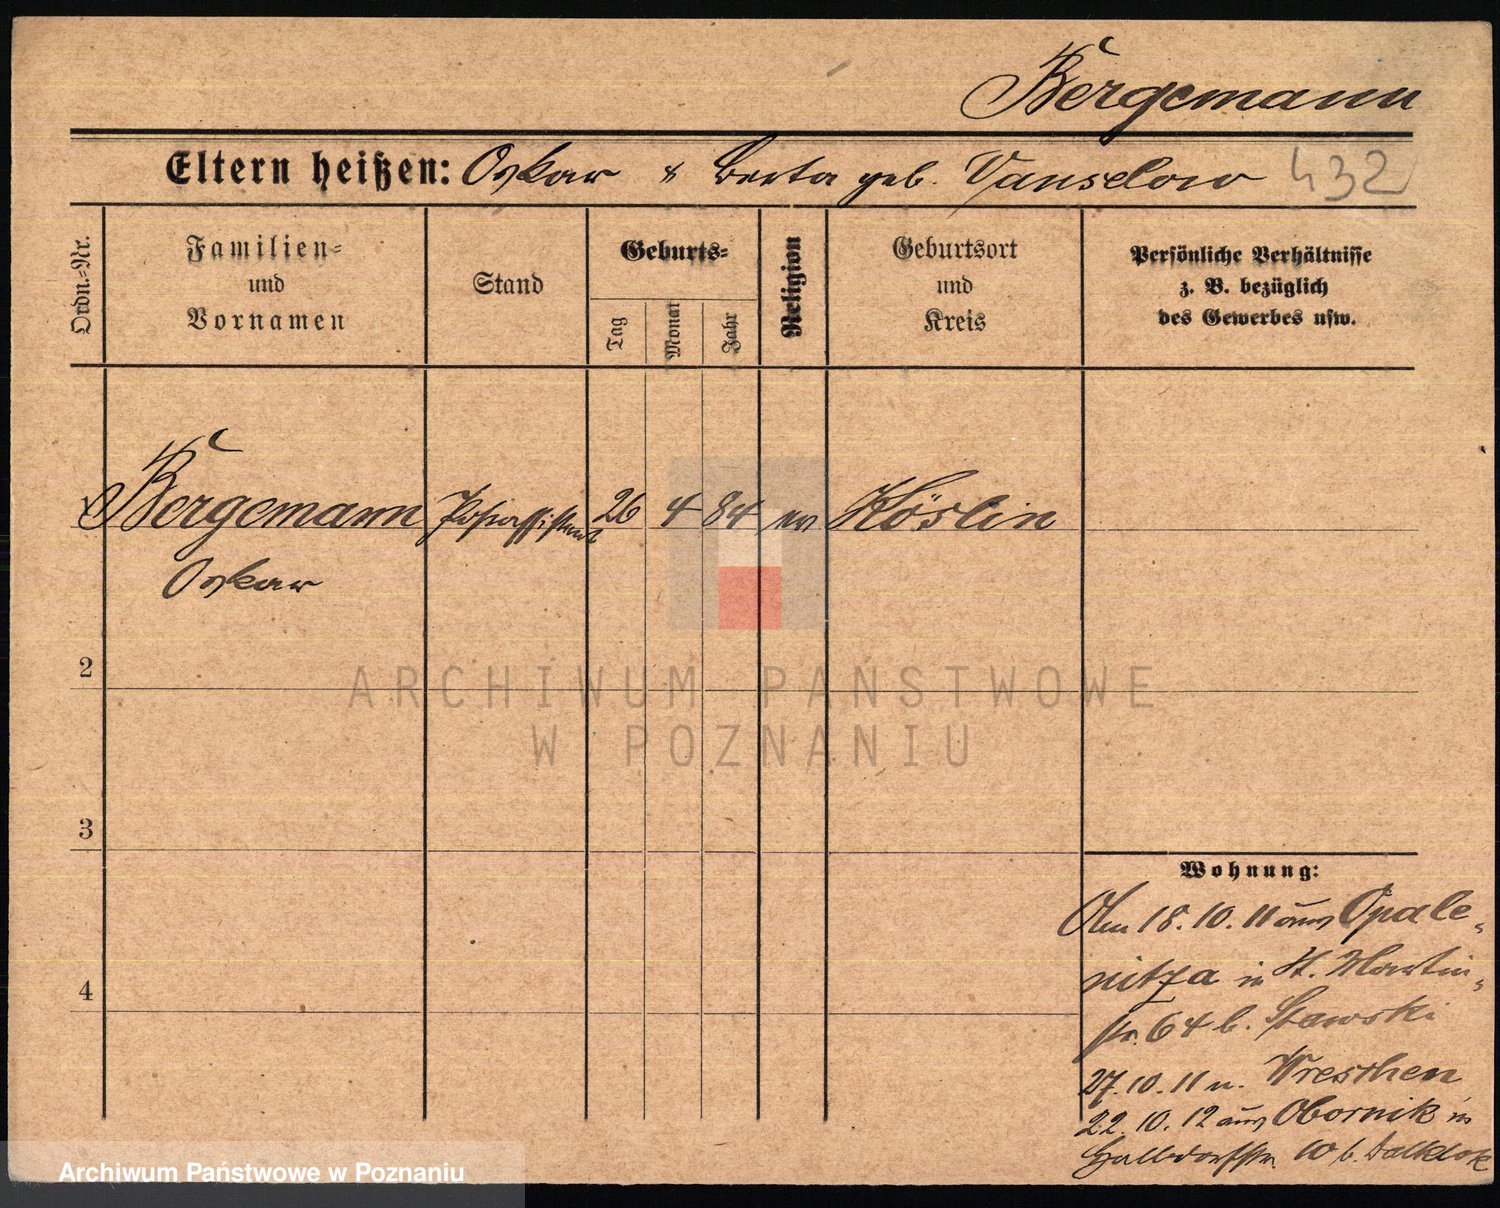 Bergemann
Eltern heißen: Oskar & Berta geb. Vanselow 432
Ordn.-Nr.
Familien-
und
Vornamen
Stand
Geburts-
Tag
Monat
Jahr
Religion
Geburtsort
und
Kreis
Persönliche Verhältnisse
z. B. bezüglich
des Gewerbes usw.
1 Bergemann Postassistent 26 4 84 ev Köslin
Oskar
2
3
4
Wohnung:
18.10.11 aus Opale-
nitza in St. Martin-
str. 64 b. Stawski
27.10.11 n. Wreschen
22.10.12 aus Obornik in
Halbdorfstr. 10 b.
ARCHIWUM PAŃSTWOWE
W POZNANIU
Archiwum Państwowe w Poznaniu